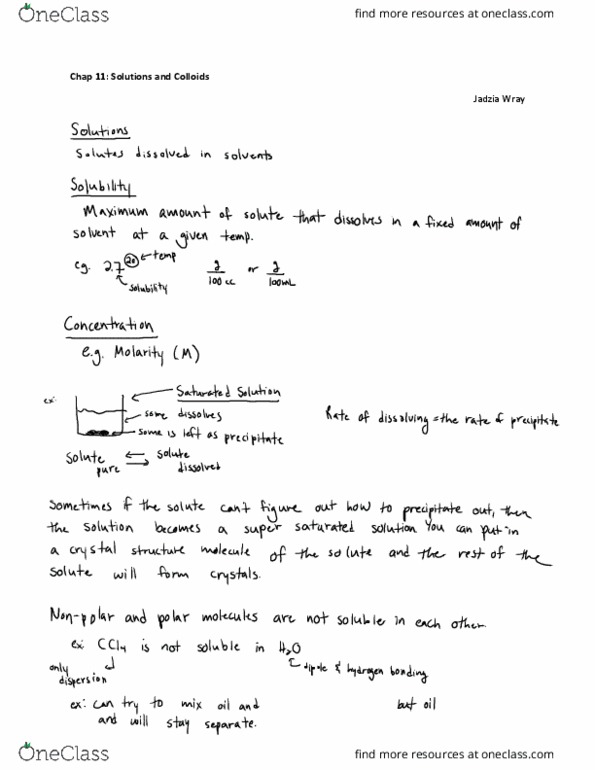 OneClass find more resources at oneclass.com
Chap 11: Solutions and Colloids
Jadzia Wray
Solutions
Solutes dissolved in solvents
Solubility
Maximum amount of solute that dissolves in a fixed amount of
solvent at a given temp.
eg. 2.7 20 ← temp g/100cc or g/100mL
solubility
Concentration
e.g. Molarity (M)
ex: Saturated Solution
some dissolves Rate of dissolving = the rate of precipitate
some is left as precipitate
solute pure ⇌ solute dissolved
Sometimes if the solute can't figure out how to precipitate out, then
the solution becomes a super saturated solution. You can put in
a crystal structure molecule of the solute and the rest of the
solute will form crystals.
Non-polar and polar molecules are not soluble in each other.
ex: CCl4 is not soluble in H2O
only dispersion dipole & hydrogen bonding
ex: can try to mix oil and but oil
and will stay separate.
OneClass find more resources at oneclass.com